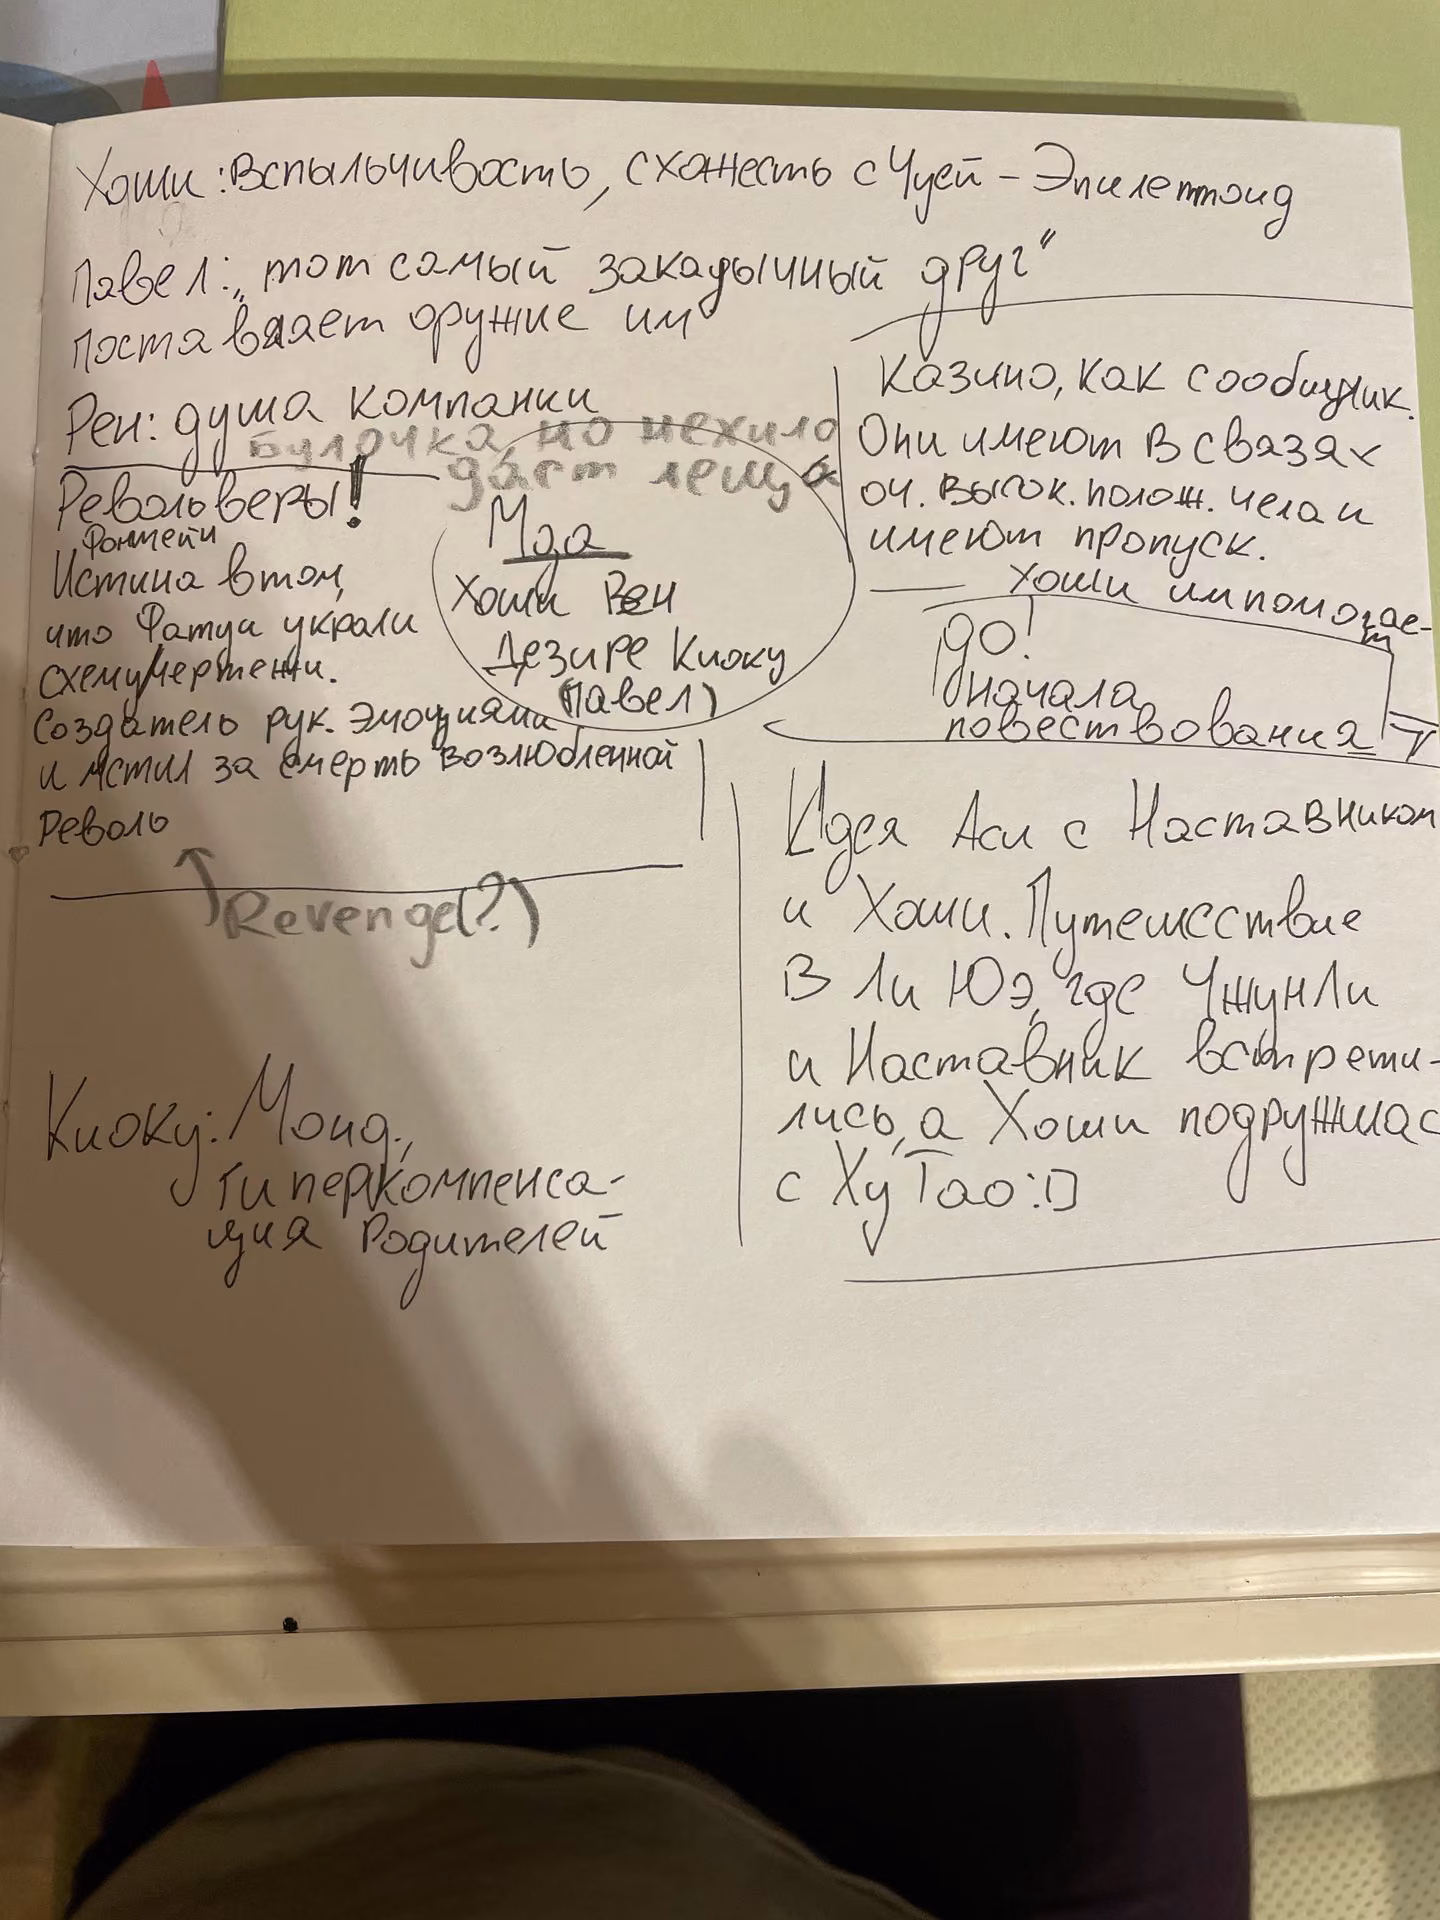 Хоши: Вспыльчивость, схожесть с Чуей – Эпилептоид
Павел: „тот самый закадычный друг“
поставляет оружие им
Рен: душа компании
Булочка, но нехило
даст леща
Револьверы!
Фонтейн
Истина в том,
что Фатуи украли
схему/чертежи.
Создатель рук. эмоциями
и мстил за смерть возлюбленной
Револь
Revenge(?)
Мда
Хоши Рен
Дезире Киоку
(Павел)
Казино, как сообщник.
Они имеют в связях
оч. высок. полож. чела и
имеют пропуск.
Хоши им помогает
до!
начала
повествования
Идея Аси с Наставником
и Хоши. Путешествие
в Ли Юэ, где Чжунли
и Наставник встрети-
лись, а Хоши подружилас
с Ху Тао:D
Киоку: Шоид.,
Гиперкомпенса-
ция Родителей